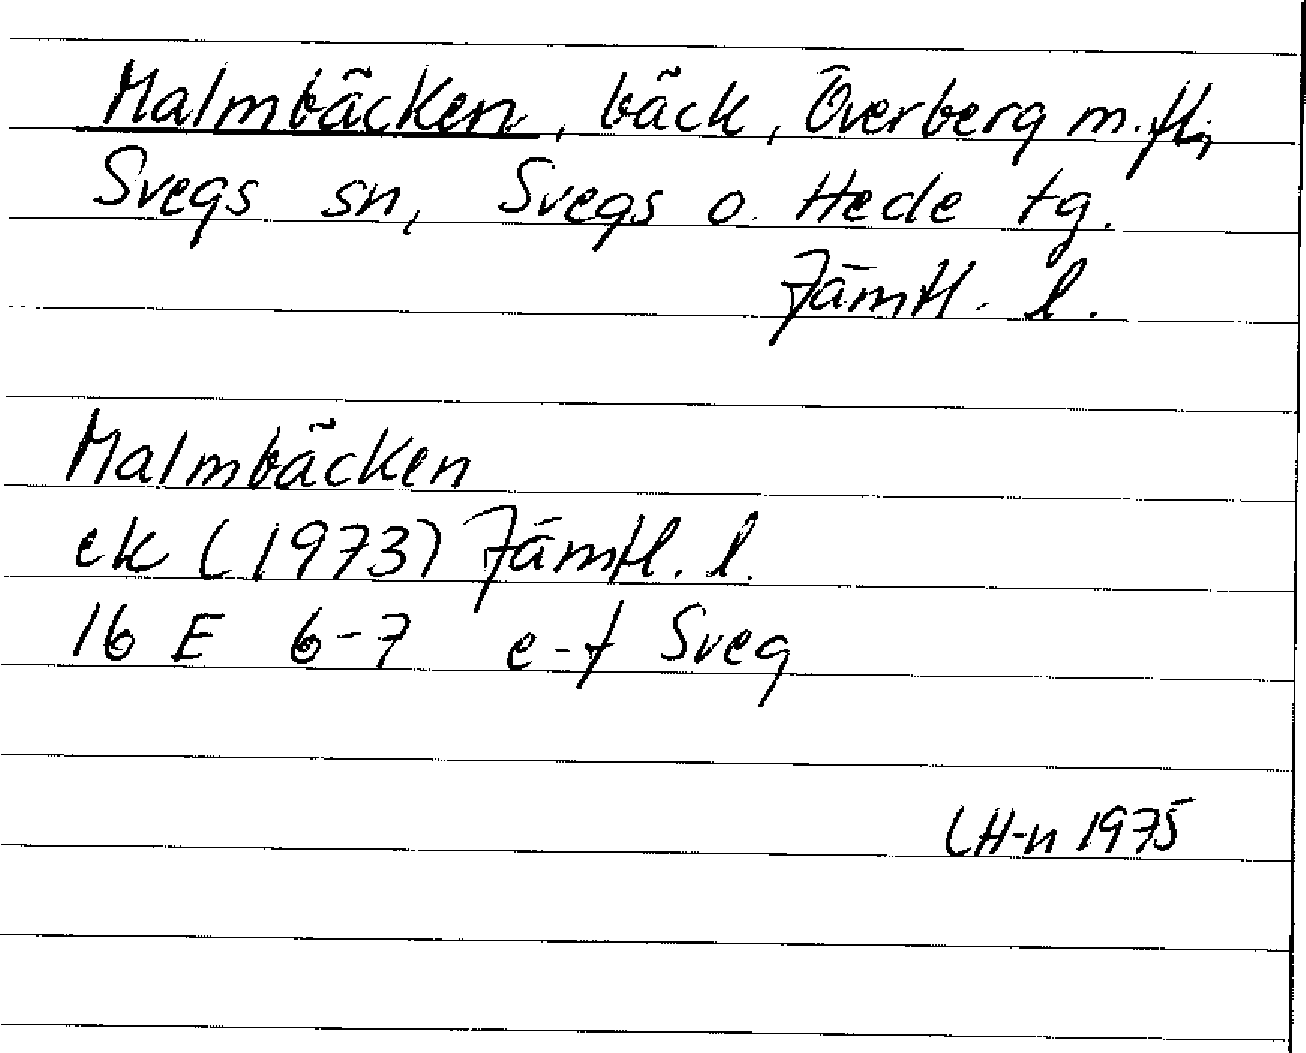 Malmbäcken, bäck, Överberg m.fl.,
Svegs sn, Svegs o. Hede tg.
Jämtl. l.
Malmbäcken
ek (1973) Jämtl. l.
16 E 6-7 e-f Sveg
LH-n 1975